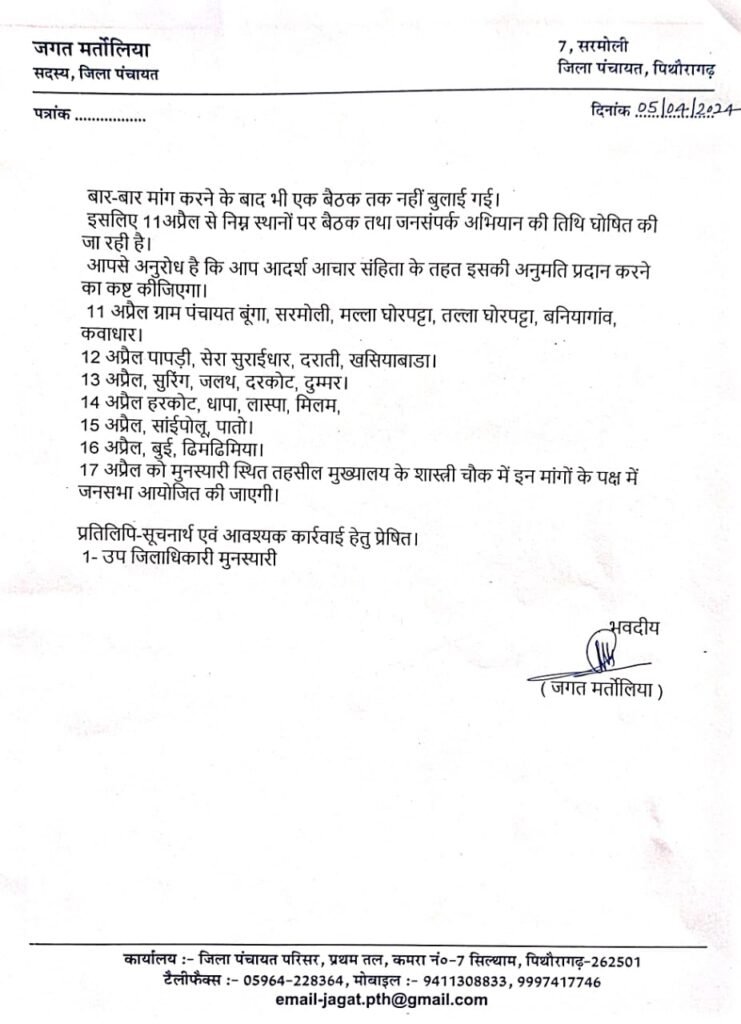 जगत मर्तोलिया
सदस्य, जिला पंचायत
7, सरमोली
जिला पंचायत, पिथौरागढ़
पत्रांक .................
दिनांक 05/04/2024
बार-बार मांग करने के बाद भी एक बैठक तक नहीं बुलाई गई।
इसलिए 11अप्रैल से निम्न स्थानों पर बैठक तथा जनसंपर्क अभियान की तिथि घोषित की
जा रही है।
आपसे अनुरोध है कि आप आदर्श आचार संहिता के तहत इसकी अनुमति प्रदान करने
का कष्ट कीजिएगा।
11 अप्रैल ग्राम पंचायत बूंगा, सरमोली, मल्ला घोरपट्टा, तल्ला घोरपट्टा, बनियागांव,
कवाधार।
12 अप्रैल पापड़ी, सेरा सुराईधार, दराती, खसियाबाडा।
13 अप्रैल, सुरिंग, जलथ, दरकोट, दुम्मर।
14 अप्रैल हरकोट, धापा, लास्पा, मिलम,
15 अप्रैल, सांईपोलू, पातो।
16 अप्रैल, बुई, ढिमढिमिया।
17 अप्रैल को मुनस्यारी स्थित तहसील मुख्यालय के शास्त्री चौक में इन मांगों के पक्ष में
जनसभा आयोजित की जाएगी।
प्रतिलिपि-सूचनार्थ एवं आवश्यक कार्रवाई हेतु प्रेषित।
1- उप जिलाधिकारी मुनस्यारी
भवदीय
( जगत मर्तोलिया )
कार्यालय :- जिला पंचायत परिसर, प्रथम तल, कमरा नं०-7 सिल्थाम, पिथौरागढ़-262501
टैलीफैक्स :- 05964-228364, मोबाइल :- 9411308833, 9997417746
email-jagat.pth@gmail.com